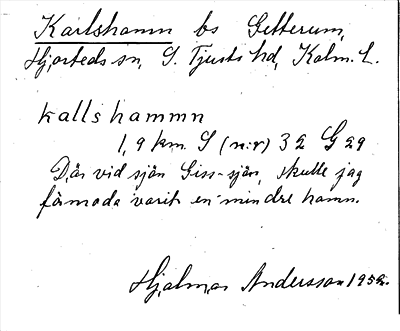 Karlshamn bs Getterum,
Hjorteds sn, S. Tjusts hd, Kalm. L.
kallshammn
1,9 km S (n:r) 32 G 29
Där vid sjön Giss-sjön, skulle jag
förmoda varit en mindre hamn.
Hjalmar Andersson 1952.